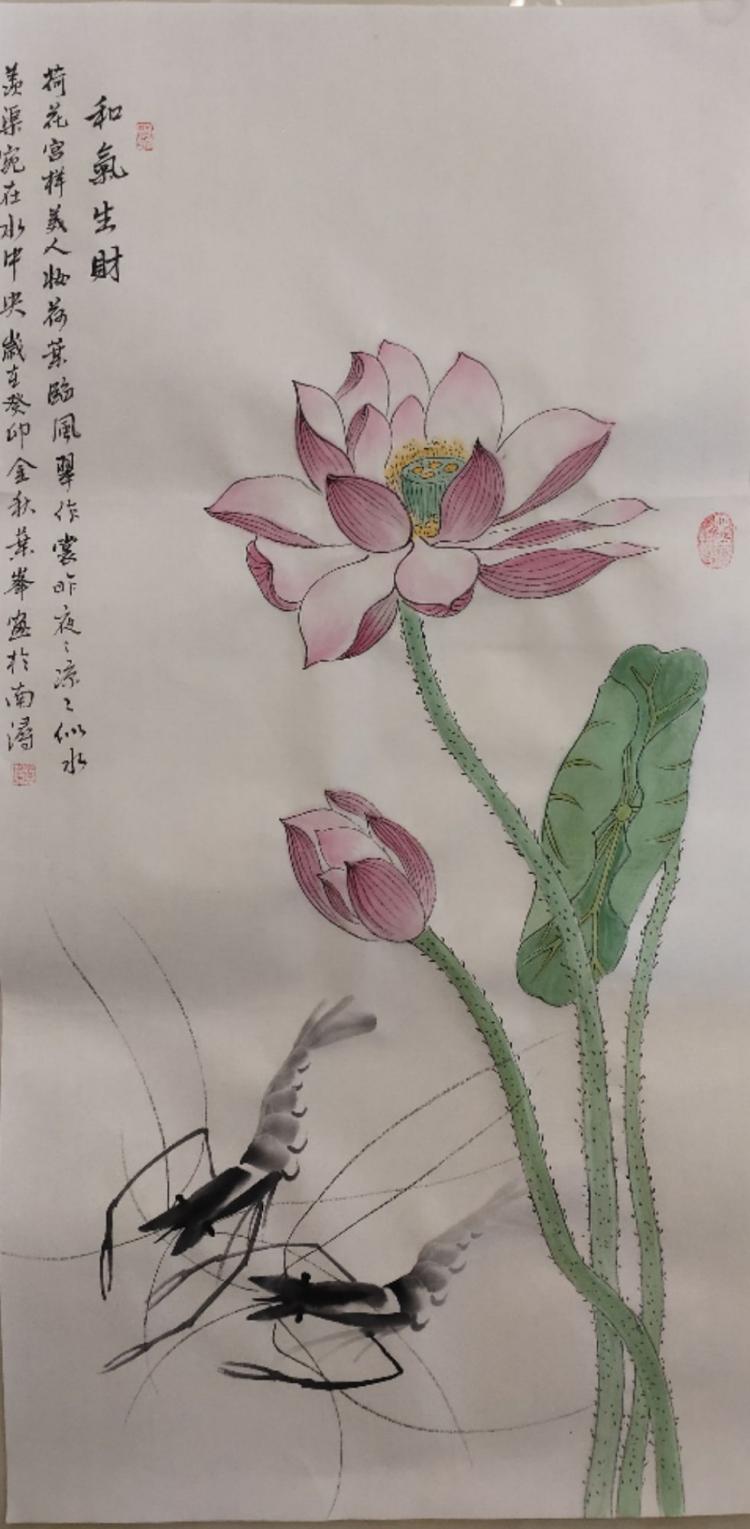 和氣生財
荷花宮樣美人妝荷葉臨風翠作裳昨夜〻涼〻似水
羨渠宛在水中央歲在癸卯金秋葉峯畫於南潯